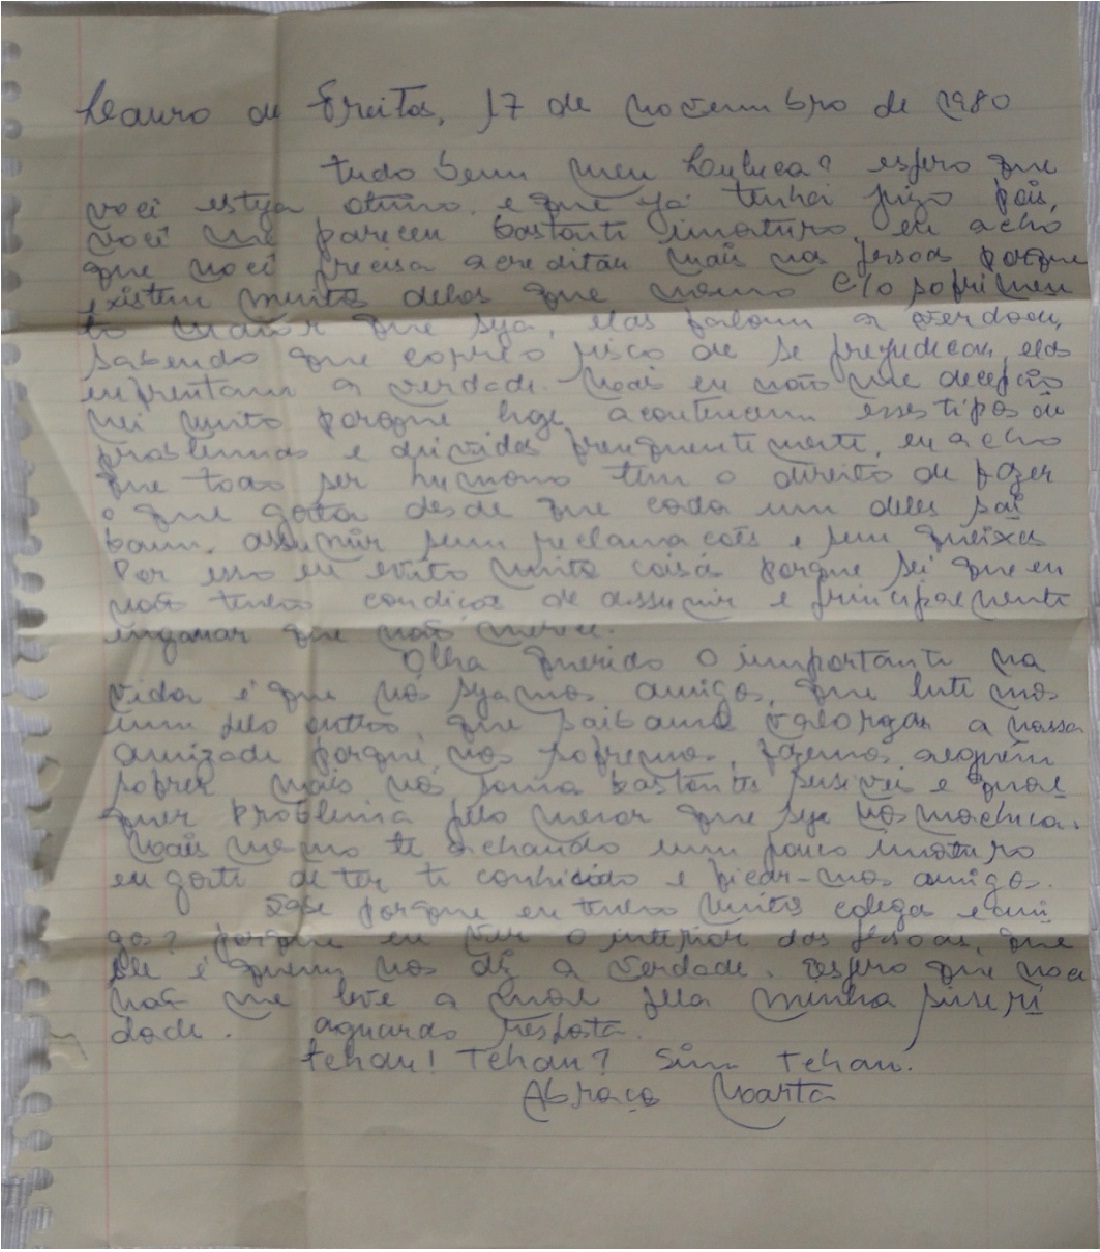 Lauro de Freitas, 17 de novembro de 1980
tudo bem meu espero que
você esteja otimo. e que já tenha juizo pois,
você me pareceu bastante imaturo, eu acho
que você precisa acreditar mais nas pessoas porque
existem muitas delas que mesmo c/o sofrimen
to maior que seja, elas falam a verdade,
sabendo que corre o risco de se prejudicar, elas
enfrentam a verdade. Mais eu não me decepcio
nei muito porque hoje acontecem esses tipos de
problemas e duvidas frenquentemente, eu acho
que todo ser humano tem o direito de fazer
o que gosta desde que cada um deles sai
bam. assumir sem reclamacoes e sem queixas
Por isso eu evito muita coisa porque sei que eu
não tenho condicoes de assumir e principalmente
enganar que não merece.
Olha querido o importante na
vida é que nós sejamos amigos, que lute mos
um pelo outro, que saibamos valorizar a nossa
amizade porque nos sofremos, fazemos alguém
sofrer mais nós somos bastante sensivei e qual
quer problema pelo menor que seja nos machuca.
Mais mesmo te achando um pouco imaturo
eu gostei de ter ti conhecido e ficar-mos amigos.
Sabe porque eu tenho muitos colegas e ami
gos? porque eu vejo o interior das pessoas, que
ele é quem nos dá a verdade. Espero que voce
não me leve a mal pela minha sinseri
dade. aguardo resposta.
tchau! Tchau? Sim tchau.
Abraços Marta